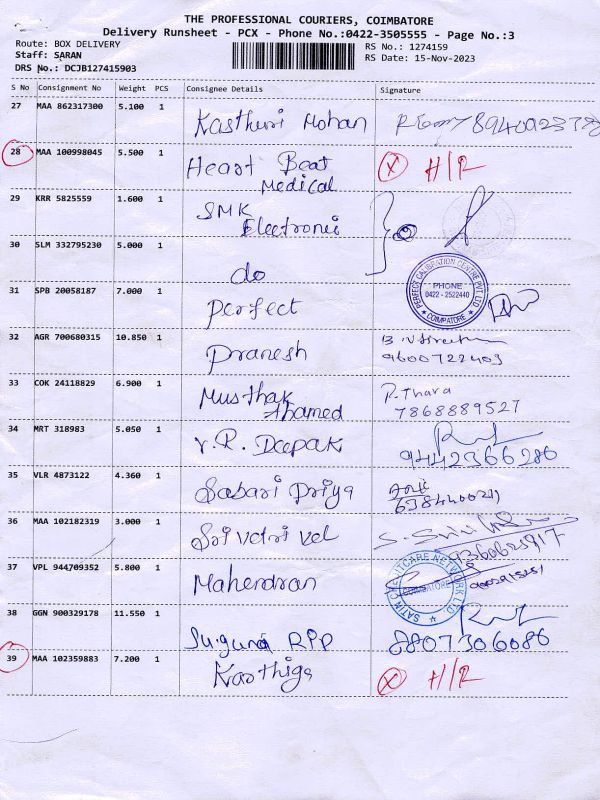 THE PROFESSIONAL COURIERS, COIMBATORE
Delivery Runsheet - PCX - Phone No.:0422-3505555 - Page No.:3
Route: BOX DELIVERY RS No.: 1274159
Staff: SARAN RS Date: 15-Nov-2023
DRS No.: DCJB127415903
S No Consignment No Weight PCS Consignee Details Signature
27 MAA 862317300 5.100 1 Kasthuri Mohan
28 MAA 100998045 5.500 1 Heart Beat
Medical
29 KRR 5825559 1.600 1 SMK
Electronic
30 SLM 332795230 5.000 1 do
31 SPB 20058187 7.000 1 Perfect
PERFECT CALIBRATION CENTRE PVT LTD
PHONE
0422 - 2522440
COIMPATORE
32 AGR 700680315 10.850 1 Pranesh
9600722403
33 COK 24118829 6.900 1 Musthak
Ahamed
P. Thara
7868889527
34 MRT 318983 5.050 1 V.R. Deepak
9442366286
35 VLR 4873122 4.360 1 Sabari Priya
36 MAA 102182319 3.000 1 Sri Vetri Vel
37 VPL 944709352 5.800 1 Mahendran
SATIN CREDITCARE NETWORK LTD
COIMBATORE
38 GGN 900329178 11.550 1 Suguna RIP
8807306086
39 MAA 102359883 7.200 1 Karthiga